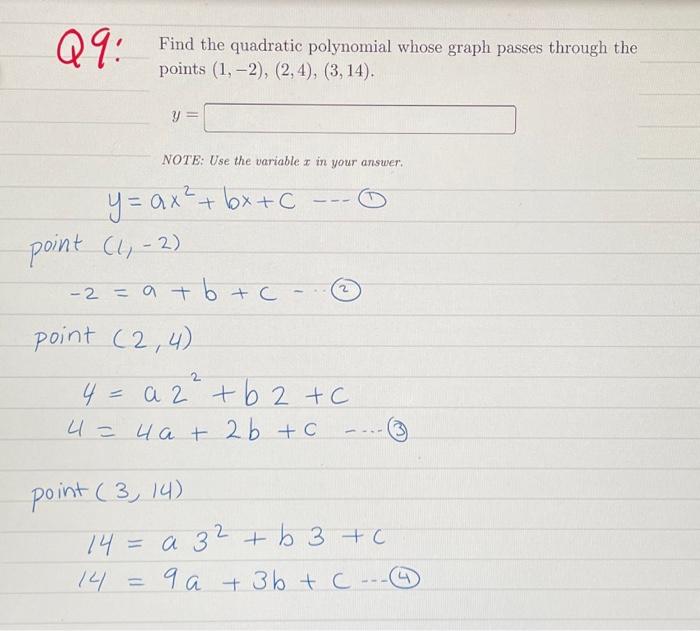 Q9: Find the quadratic polynomial whose graph passes through the
points (1, −2), (2, 4), (3, 14).
y =
NOTE: Use the variable x in your answer.
y = ax² + bx + c --- ①
point (1, -2)
-2 = a + b + c - -- ②
point (2, 4)
4 = a 2² + b 2 + c
4 = 4a + 2b + c ---- ③
point (3, 14)
14 = a 3² + b 3 + c
14 = 9a + 3b + c --- ④